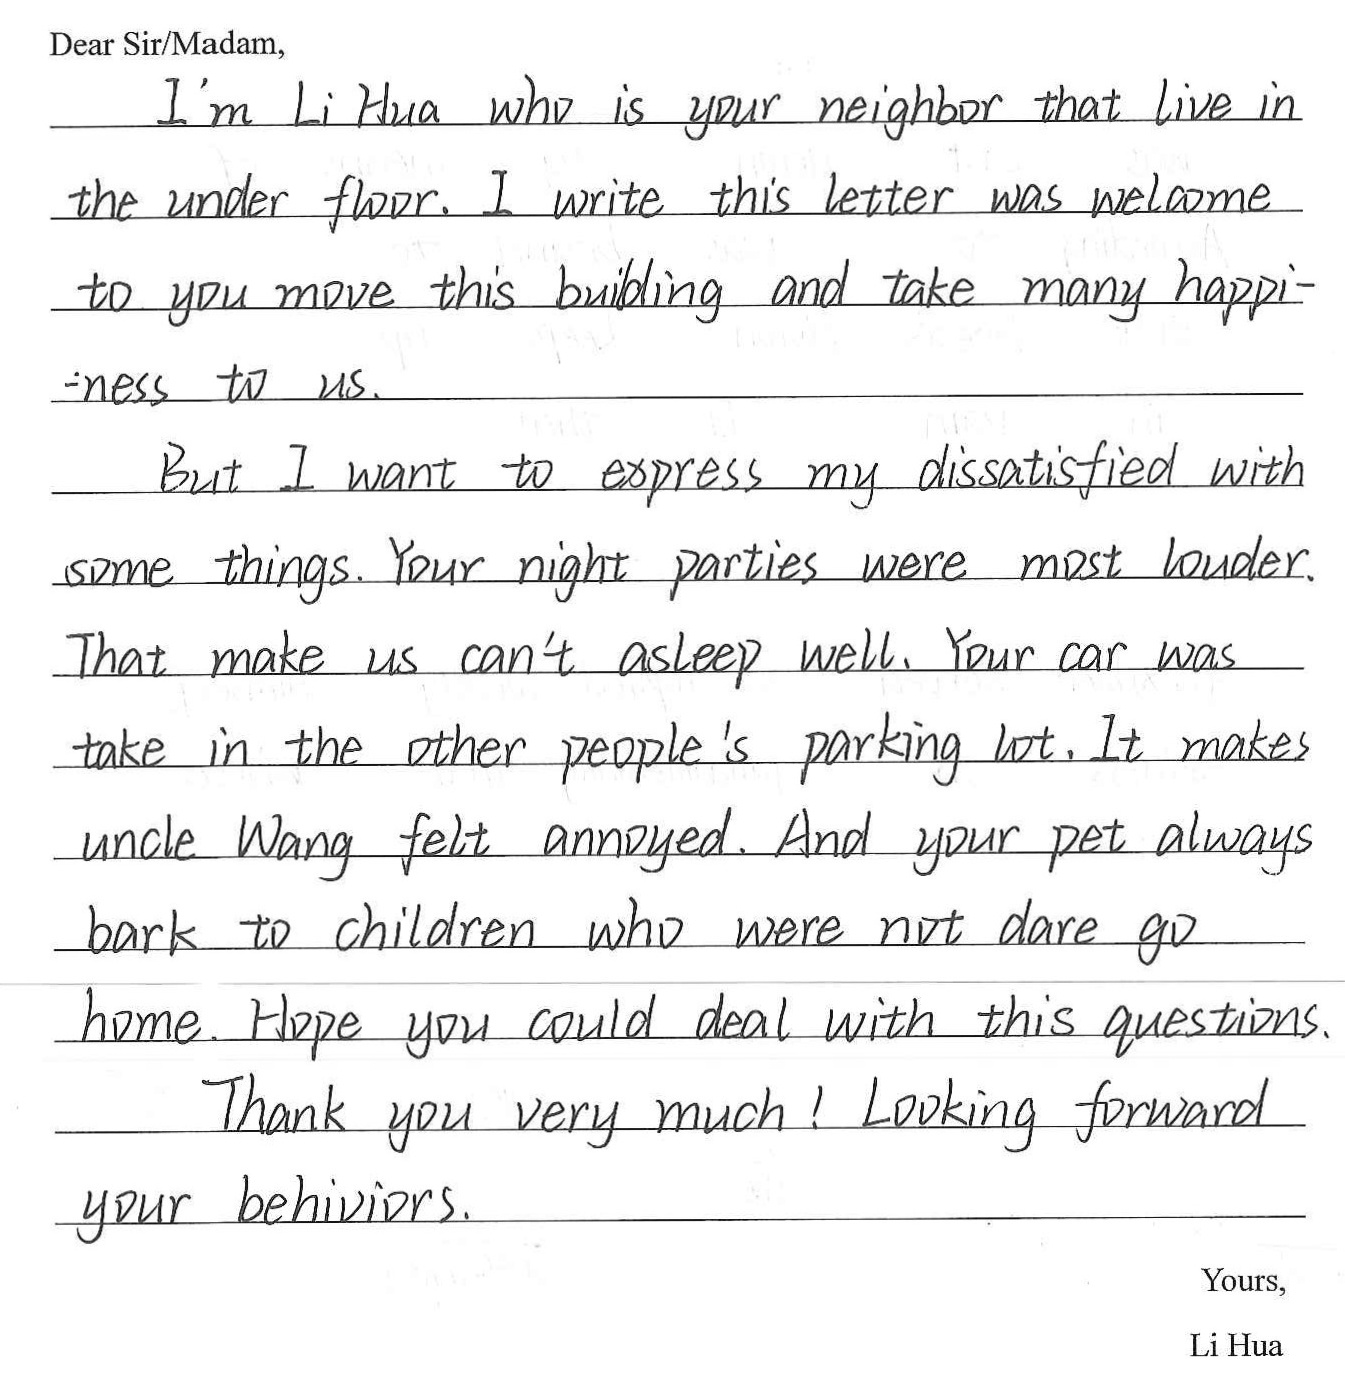 Dear Sir/Madam,
I'm Li Hua who is your neighbor that live in
the under floor. I write this letter was welcome
to you move this building and take many happi-
-ness to us.
But I want to express my dissatisfied with
some things. Your night parties were most louder.
That make us can't asleep well. Your car was
take in the other people's parking lot. It makes
uncle Wang felt annoyed. And your pet always
bark to children who were not dare go
home. Hope you could deal with this questions.
Thank you very much! Looking forward
your behiviors.
Yours,
Li Hua